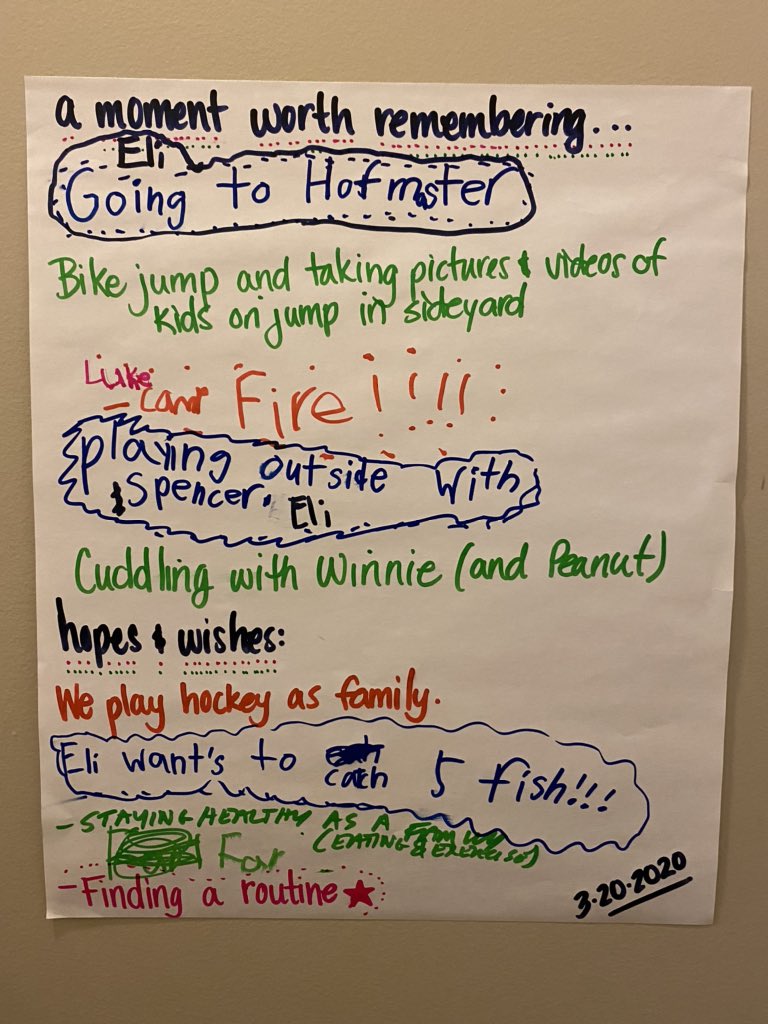 a moment worth remembering...
Eli
Going to Hofmaster
Bike jump and taking pictures & videos of
kids on jump in sideyard
Luke
- Camp Fire!!!!!
playing outside with
& Spencer. Eli
Cuddling with Winnie (and Peanut)
hopes & wishes:
We play hockey as family.
Eli want's to catch 5 fish!!!
- STAYING HEALTHY AS A FAMILY
(EATING & EXERCISE)
For
- Finding a routine ★
3.20.2020